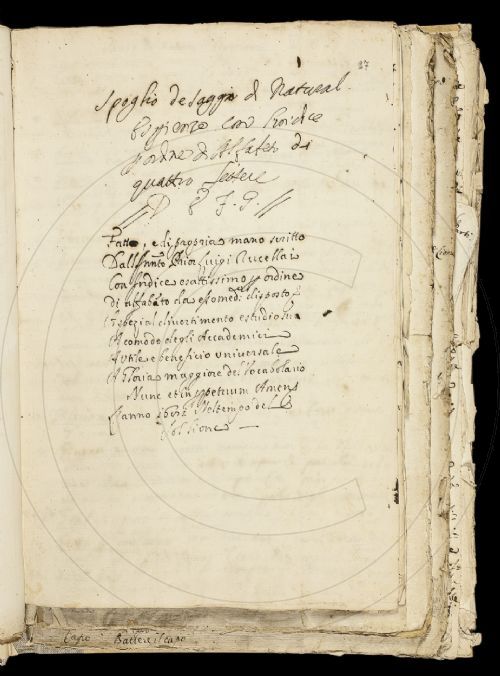 37
Spoglio de Saggi di Natural
Esperienze con Indice
p ordine di Alfabeto di
quattro lettere
// D E F G //
Fatto, e di propria mano scritto
Dall Luigi Rucellai
Con Indice esattissimo p ordine
di alfabeto da esso med: disposto p
special divertimento e studio suo
A comodo degli Accademici
A utile e beneficio universale
A Gloria maggiore del Vocabolario
Nunc et in perpetuum Amen
L'anno Nel tempo del